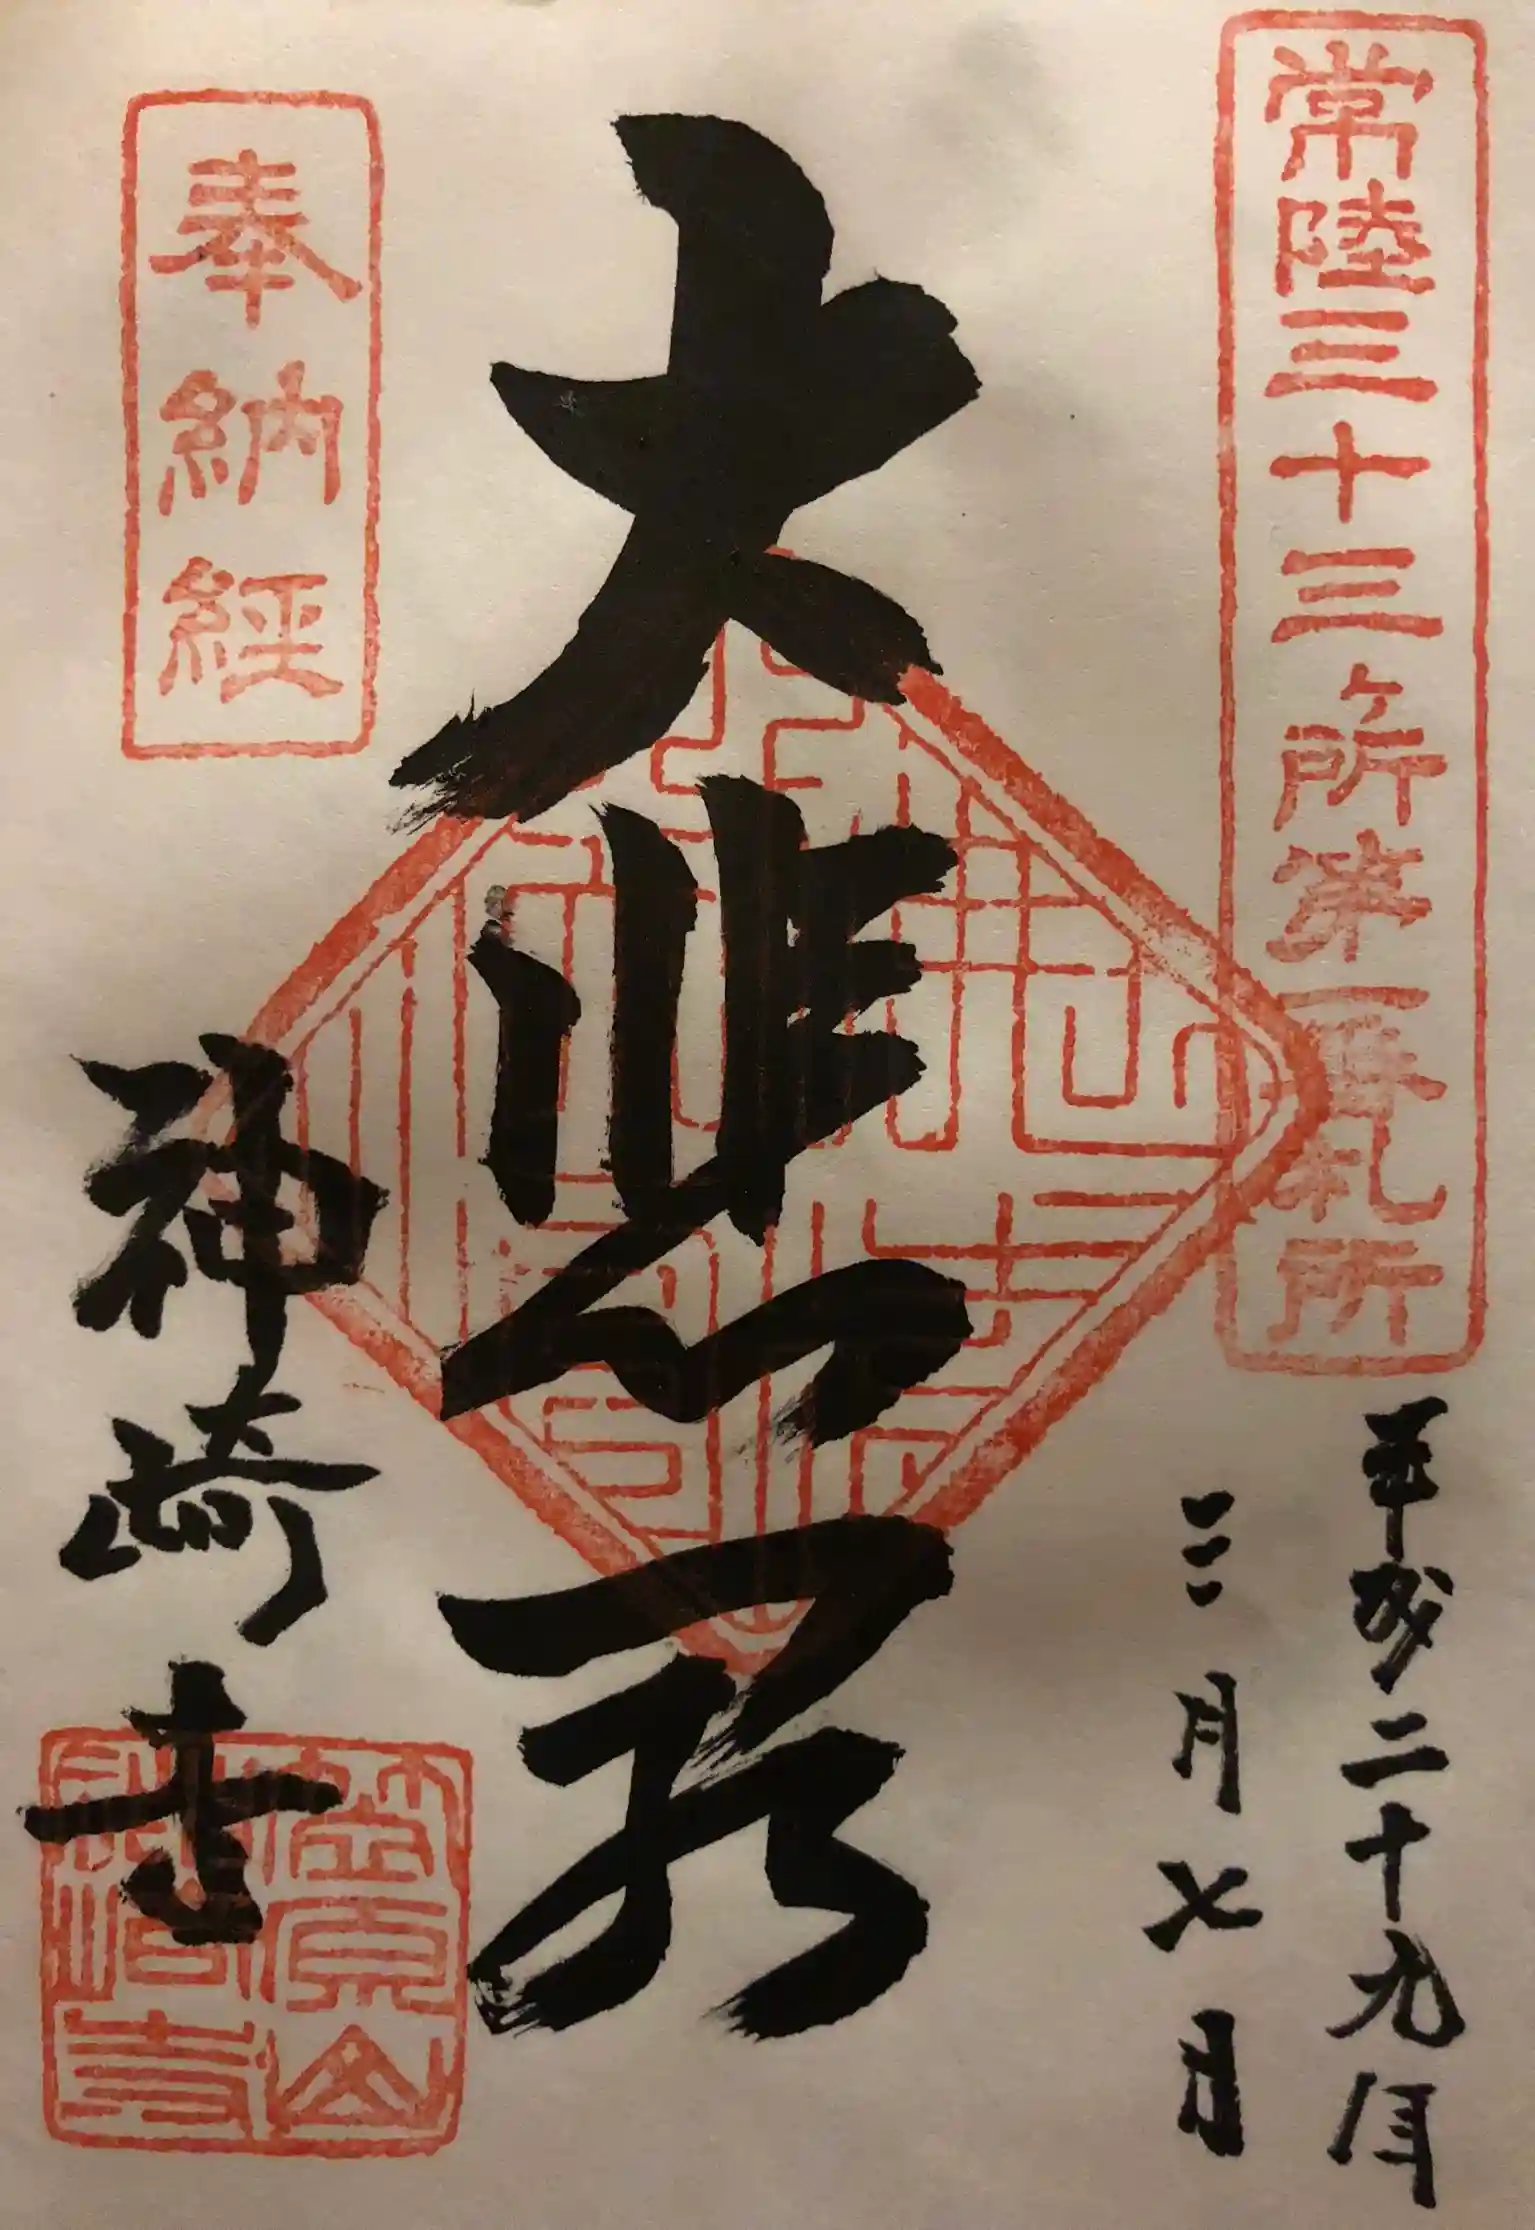 常陸三十三ヶ所第一番札所
平成二十九年
三月七日
大悲殿
奉納経
神崎寺
笠原山
神崎寺